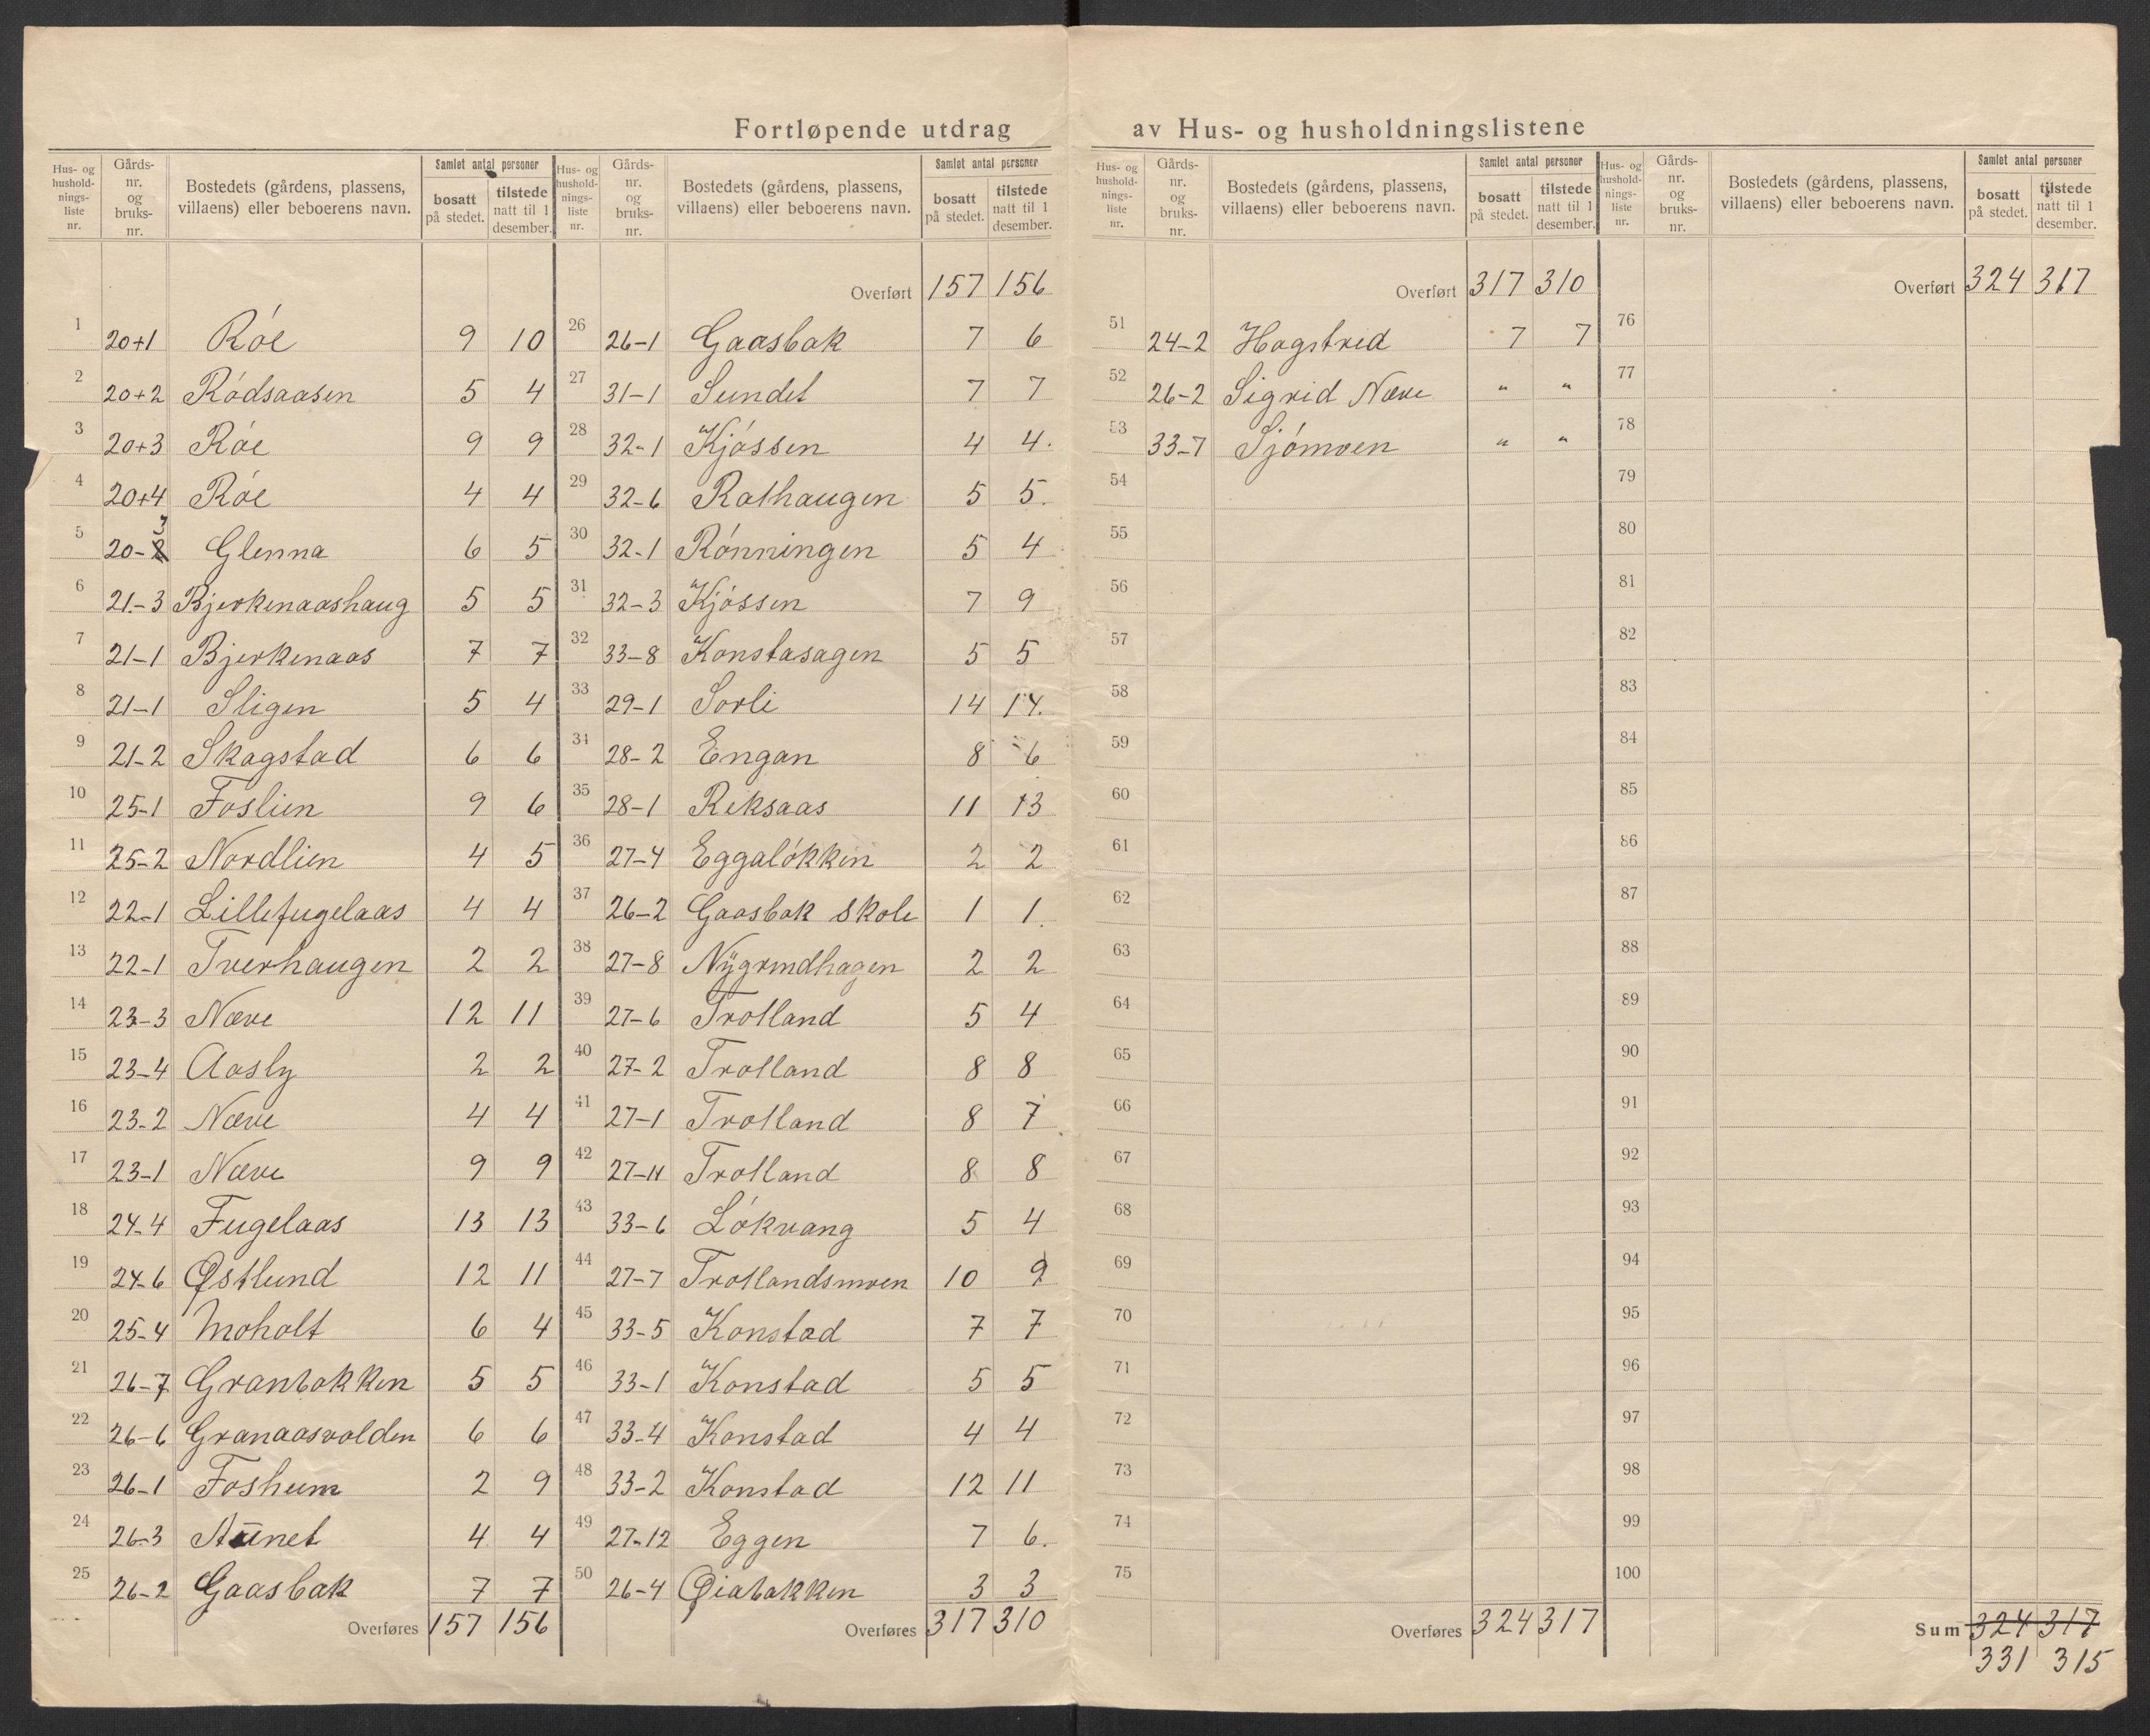 Fortløpende utdrag av Hus- og husholdningslistene
Hus- og husholdnings-liste nr. Gårds-nr. og bruks-nr. Bostedets (gårdens, plassens, villaens) eller beboerens navn. Samlet antal personer bosatt på stedet. tilstede natt til 1 desember.
1 20+1 Róe 9 10
2 20+2 Ródsaasen 5 4
3 20+3 Róe 9 9
4 20+4 Róe 4 4
5 20-3 Glenna 6 5
6 21-3 Bjerkenaashaug 5 5
7 21-1 Bjerkenaas 7 7
8 21-1 Sligen 5 4
9 21-2 Skagstad 6 6
10 25-1 Foslien 9 6
11 25-2 Nordlien 4 5
12 22-1 Lillefugelaas 4 4
13 22-1 Tverhaugen 2 2
14 23-3 Næve 12 11
15 23-4 Aasly 2 2
16 23-2 Næve 4 4
17 23-1 Næve 9 9
18 24-4 Fugelaas 13 13
19 24-6 Østlund 12 11
20 25-4 Moholt 6 4
21 26-7 Granbakken 5 5
22 26-6 Granaasvolden 6 6
23 26-1 Fosheim 2 9
24 26-3 Aunet 4 4
25 26-2 Gaasbak 7 7
Overføres 157 156
Hus- og husholdnings-liste nr. Gårds-nr. og bruks-nr. Bostedets (gårdens, plassens, villaens) eller beboerens navn. Samlet antal personer bosatt på stedet. tilstede natt til 1 desember.
Overført 157 156
26 26-1 Gaasbak 7 6
27 31-1 Sundet 7 7
28 32-1 Kjóssen 4 4.
29 32-6 Rathaugen 5 5.
30 32-1 Rónningen 5 4
31 32-3 Kjóssen 7 9
32 33-8 Konstasagen 5 5
33 29-1 Sorli 14 14.
34 28-2 Engan 8 6
35 28-1 Reksaas 11 13
36 27-4 Eggalókken 2 2
37 26-2 Gaasbak Skole 1 1.
38 27-8 Nÿgrindhagen 2 2
39 27-6 Trotland 5 4
40 27-2 Trotland 8 8
41 27-1 Trotland 8 7
42 27-11 Trotland 8 8
43 33-6 Lókvang 5 4
44 27-7 Trotlandsmoen 10 9
45 33-5 Konstad 7 7
46 33-1 Konstad 5 5
47 33-4 Konstad 4 4
48 33-2 Konstad 12 11
49 27-12 Eggen 7 6.
50 26-4 Øiabakken 3 3
Overføres 317 310
Hus- og husholdnings-liste nr. Gårds-nr. og bruks-nr. Bostedets (gårdens, plassens, villaens) eller beboerens navn. Samlet antal personer bosatt på stedet. tilstede natt til 1 desember.
Overført 317 310
51 24-2 Hagstrid 7 7
52 26-2 Sigrid Næve " "
53 33-7 Sjómoen " "
54
55
56
57
58
59
60
61
62
63
64
65
66
67
68
69
70
71
72
73
74
75
Overføres 324 317
Hus- og husholdnings-liste nr. Gårds-nr. og bruks-nr. Bostedets (gårdens, plassens, villaens) eller beboerens navn. Samlet antal personer bosatt på stedet. tilstede natt til 1 desember.
Overført 324 317
76
77
78
79
80
81
82
83
84
85
86
87
88
89
90
91
92
93
94
95
96
97
98
99
100
Sum 324 317
331 315